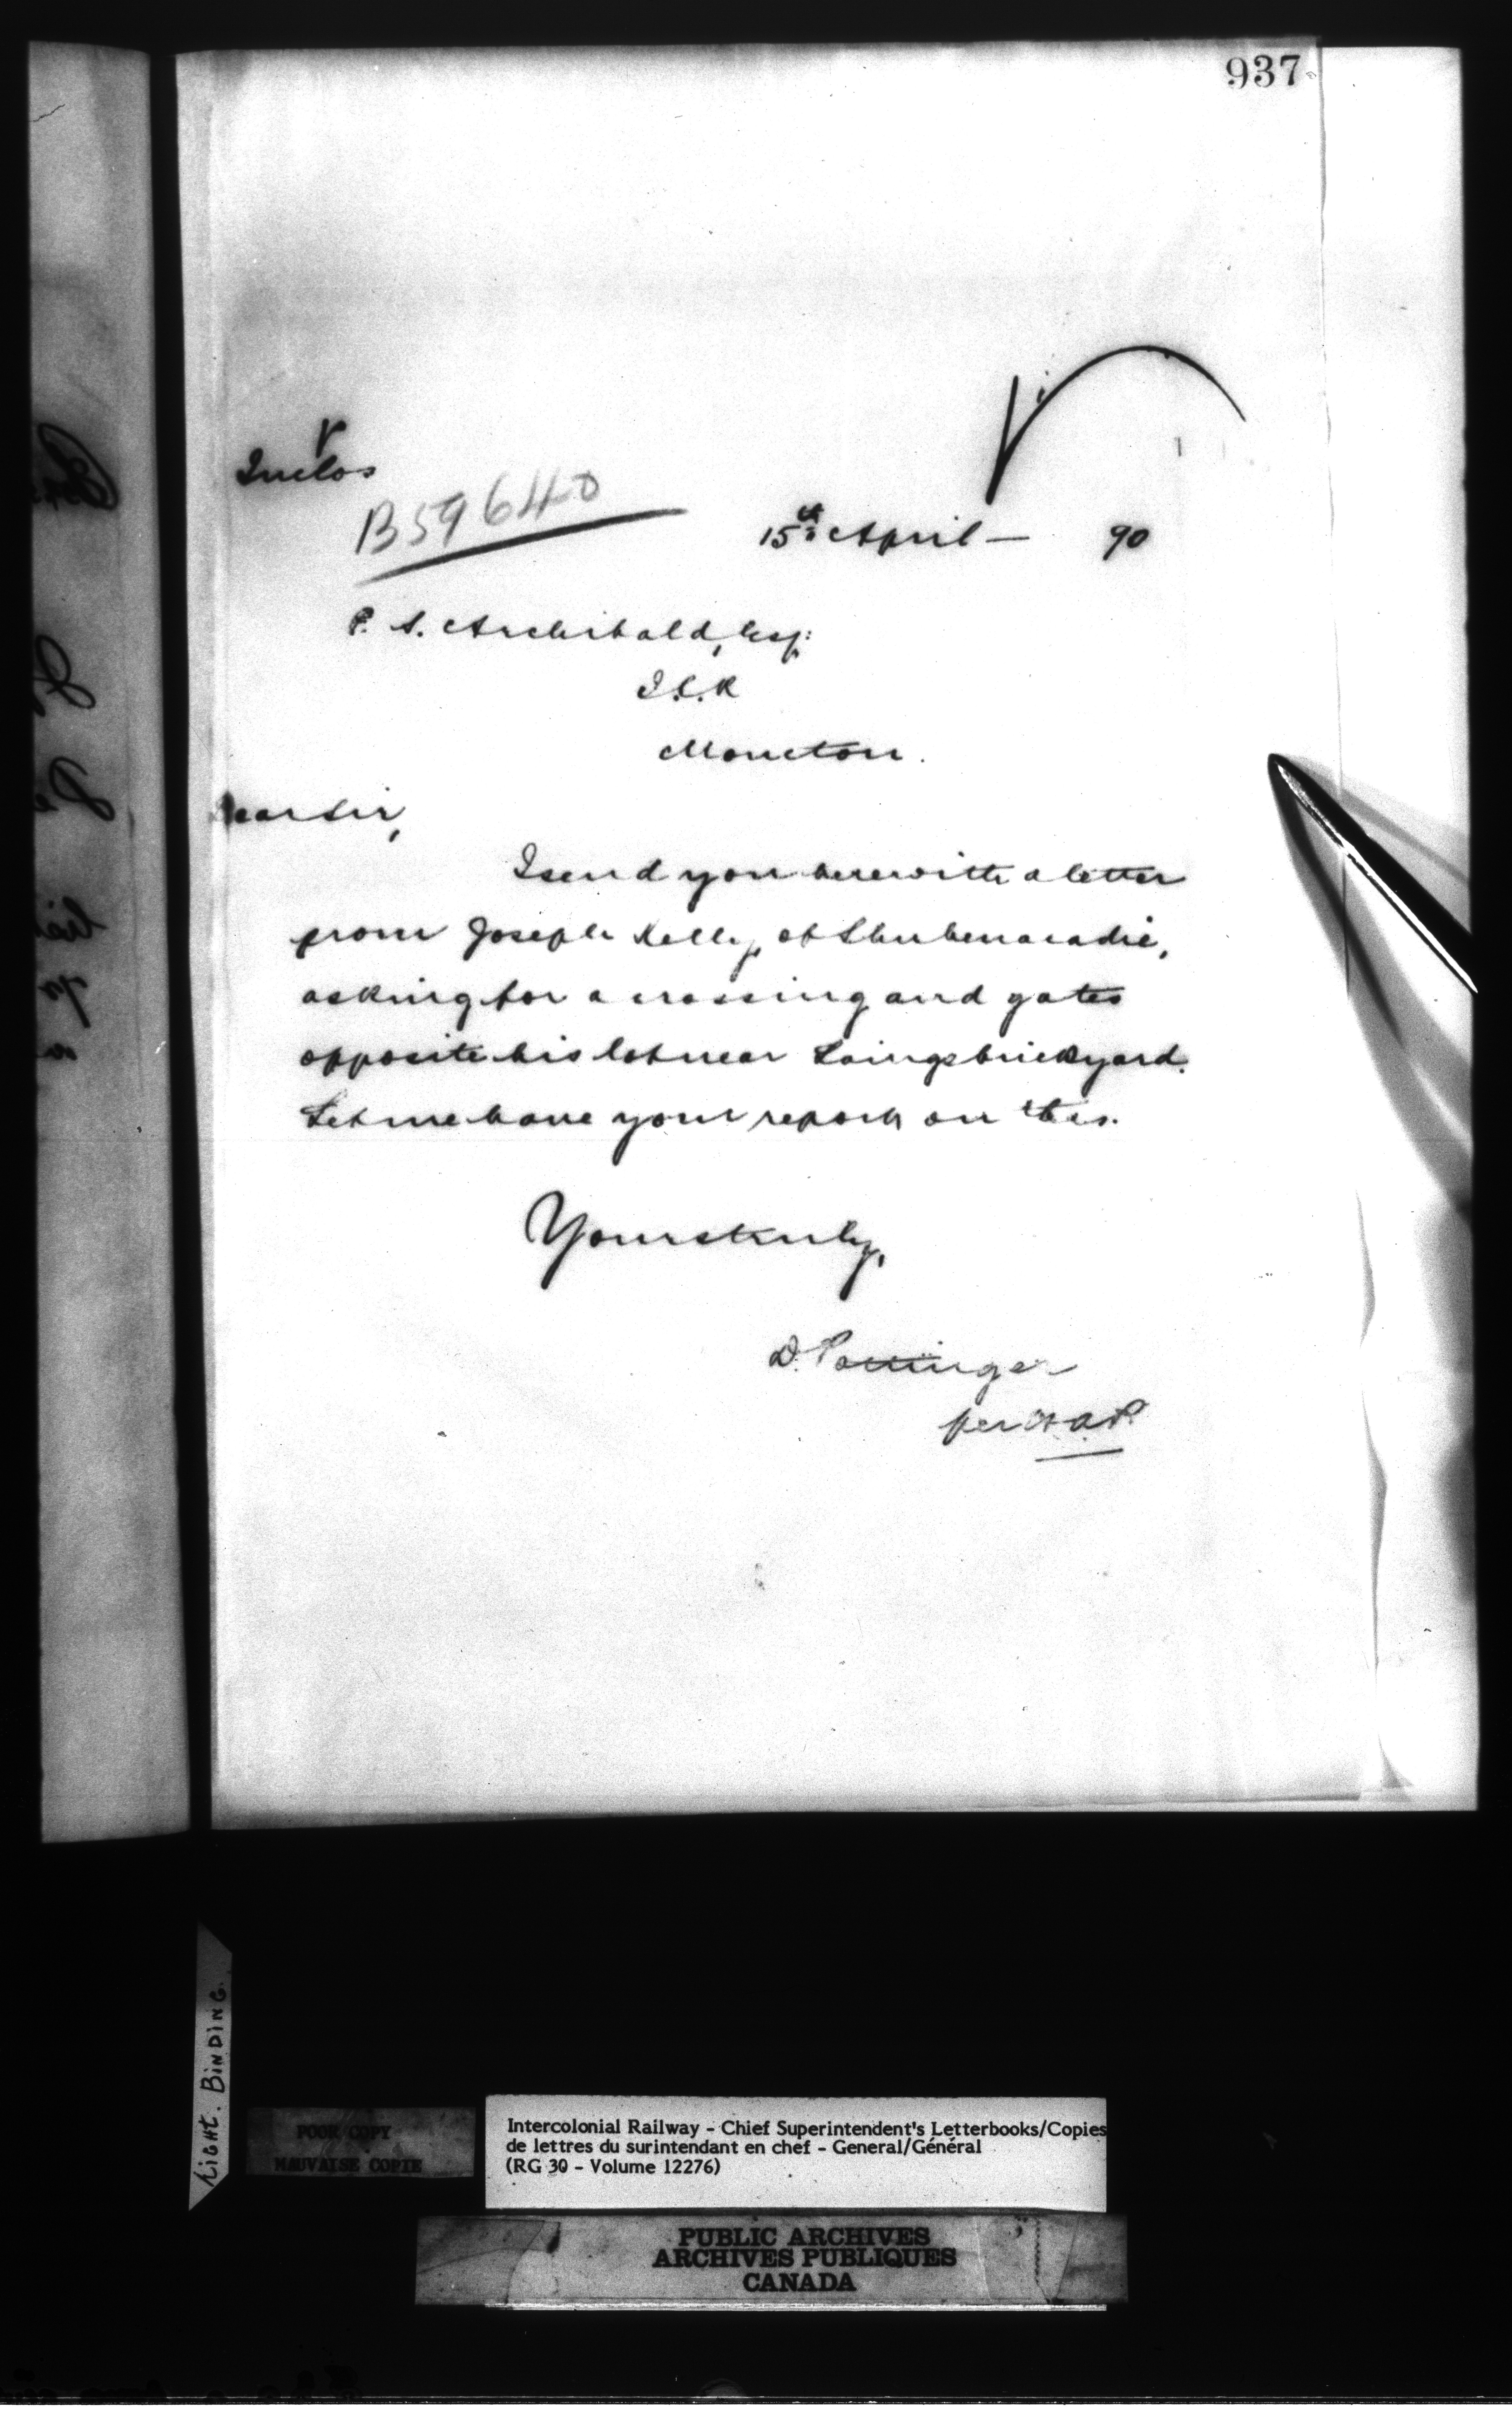 937
Inclos
B59640
15th April — 90
P. S. Archibald, Esq:
I.C.R
Moncton.
Dear Sir,
I send you herewith a letter
from Joseph Kelly, of Shubenacadie,
asking for a crossing and gates
opposite his lot near Laings brickyard.
Let me have your report on this.
Yours truly,
D. Pottinger
per
TIGHT. BINDING.
POOR COPY
MAUVAISE COPIE
Intercolonial Railway - Chief Superintendent's Letterbooks/Copies
de lettres du surintendant en chef - General/Général
(RG 30 - Volume 12276)
PUBLIC ARCHIVES
ARCHIVES PUBLIQUES
CANADA